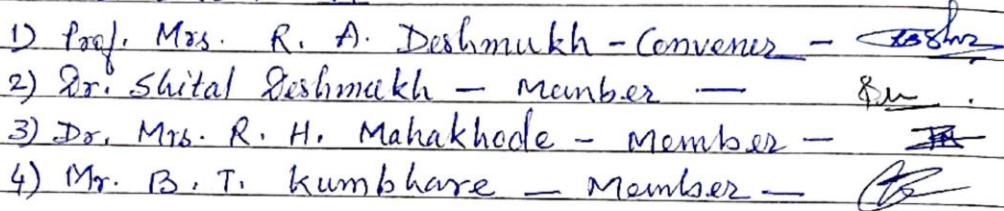 1) Prof. Mrs. R. A. Deshmukh - Convener -
2) Dr. Shital Deshmukh - Member -
3) Dr. Mrs. R. H. Mahakhode - Member -
4) Mr. B. T. Kumbhare - Member -